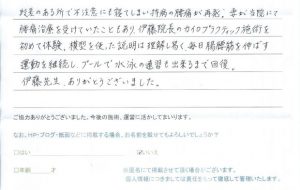 段差のある所で不注意にも寝てしまい持病の腰痛が再発。妻が当院にて
腰痛治療を受けていたこともあり、伊藤院長のカイロプラクティック施術を
初めて体験。模型を使った説明は理解し易く、毎日腸腰筋を伸ばす
運動を継続し、プールで水泳の練習も出来るまで回復。
伊藤先生、ありがとうございました。
ご協力ありがとうございました。今後の施術、運営に活かしてまいります。
なお、HP・ブログ・紙面などに掲載する場合、お名前を載せてもよろしいでしょうか?
□はい
☑いいえ
□年齢 才
※匿名にて掲載させて頂く場合がございます。
個人情報につきましては責任をもって徹底して管理いたします。